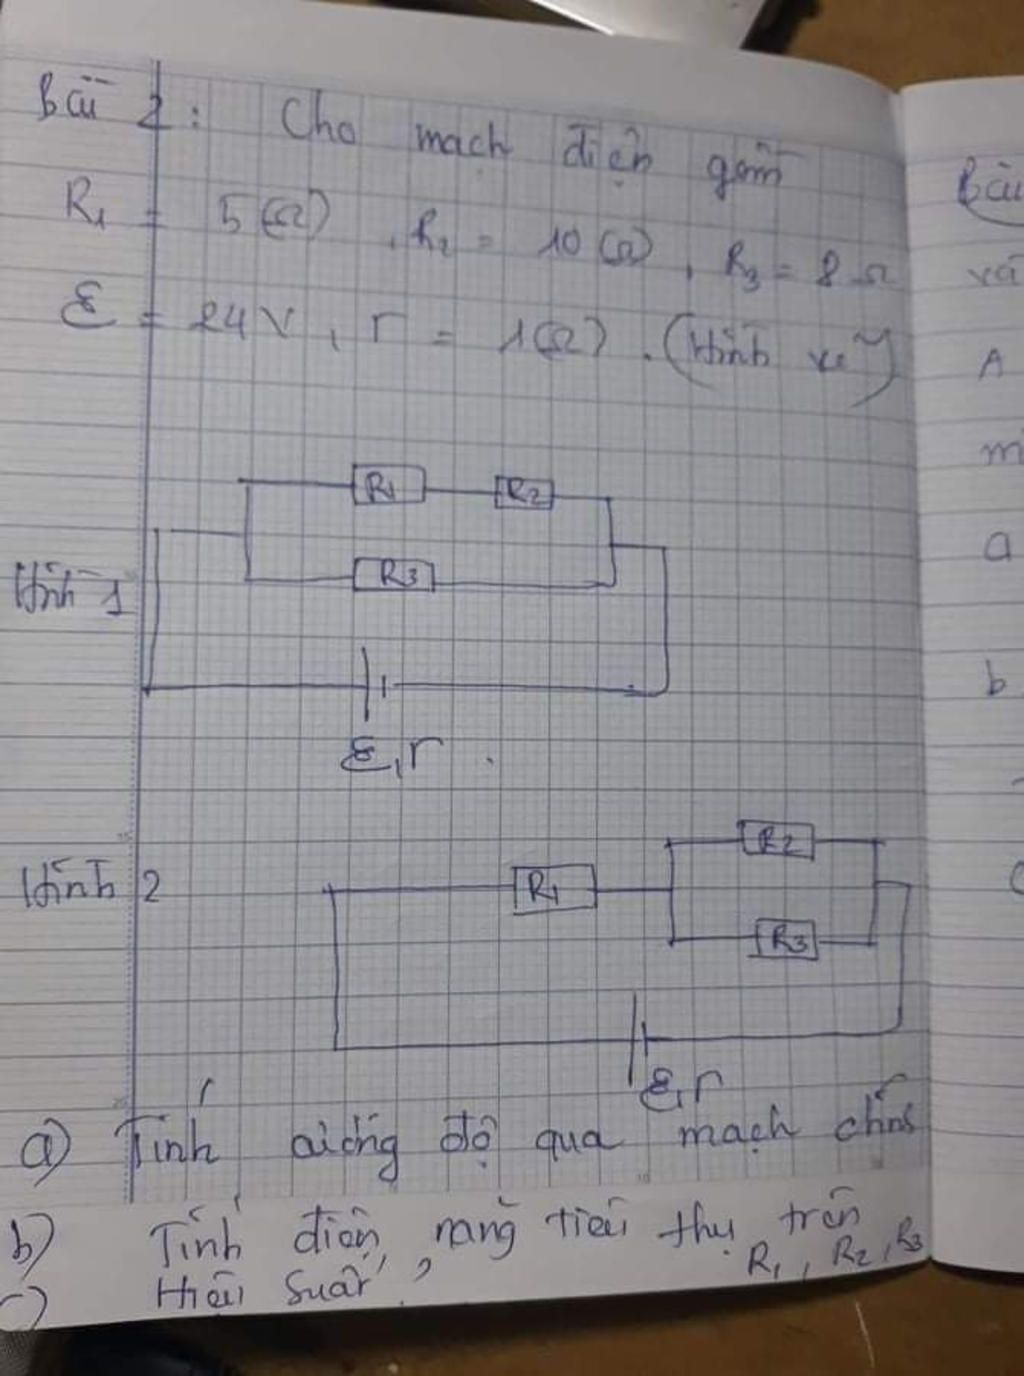 Bài 2: Cho mạch điện gồm
R₁ = 5(Ω), R₂ = 10(Ω), R₃ = 8 Ω
ℰ = 24V, r = 1(Ω). (Hình vẽ)
R₁ R₂
R₃
Hình 1
ℰ,r.
Hình 2
R₁
R₂
R₃
ℰ,r
a) Tính cường độ qua mạch chính
b) Tính điện năng tiêu thụ trên
R₁, R₂, R₃
c) Hiệu suất?
Bài
và
A
m
a
b